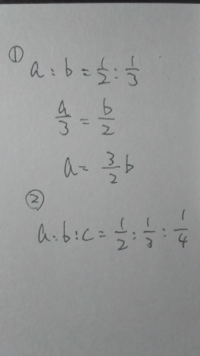 ①
a : b = 1/2 : 1/3
a/3 = b/2
a = 3/2 b
②
a : b : c = 1/2 : 1/3 : 1/4